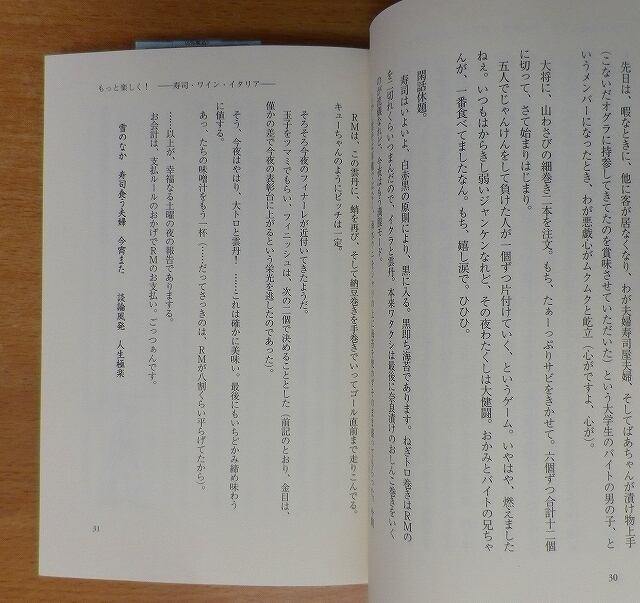 先日は、暇なときに、他に客が居なくなり、わが夫婦寿司屋夫婦、そしてばあちゃんが漬け物上手
(こないだオグラに持参してきてたのを賞味させていただいた)という大学生のバイトの男の子、と
いうメンバーになったとき、わが悪戯心がムクムクと屹立(心がですよ、心が)。
大将に、山わさびの細巻き二本を注文。もち、たぁーっぷりサビをきかせて。六個ずつ合計十二個
に切って、さて始まりはじまり。
五人でじゃんけんをして負けた人が一個ずつ片付けていく、というゲーム。いやはや、燃えました
ねぇ。いつもはからきし弱いジャンケンなれど、その夜わたくしは大健闘。おかみとバイトの兄ちゃ
んが、一番食べてましたなん。もち、嬉し涙で。ひひひ。
閑話休題。
寿司はいよいよ、白赤黒の原則により、黒に入る。黒即ち海苔であります。ねぎトロ巻きはRMの
を二切れくらいつまんだので、イクラと雲丹。本来ワタクシは最後に奈良漬けのおしんこ巻きをいく
30
もっと楽しく! ――寿司・ワイン・イタリア――
RMは、この雲丹に、蛸を再び、そして納豆巻きを手巻きでいってゴール直前まで走りこんでる。
キューちゃんのようにピッチは一定。
そろそろ今夜のフィナーレが近付いてきたようだ。
玉子をツマミでもらい、フィニッシュは、次の二個で決めることとした(前記のとおり、金目は、
僅かの差で今夜の表彰台に上がるという栄光を逃したのであった)。
そう、今夜はやはり、大トロと雲丹!……これは確かに美味い。最後にもいちどかみ締め味わう
に値する。
あっ、たちの味噌汁をもう一杯(……だってさっきのは、RMが八割くらい平らげてたから)。
……以上が、幸福なる土曜の夜の報告でありまする。
お会計は、支払ルールのおかげでRMのお支払い。ごっつぁんです。
雪のなか 寿司食う夫婦 今宵また 談論風発 人生極楽
31